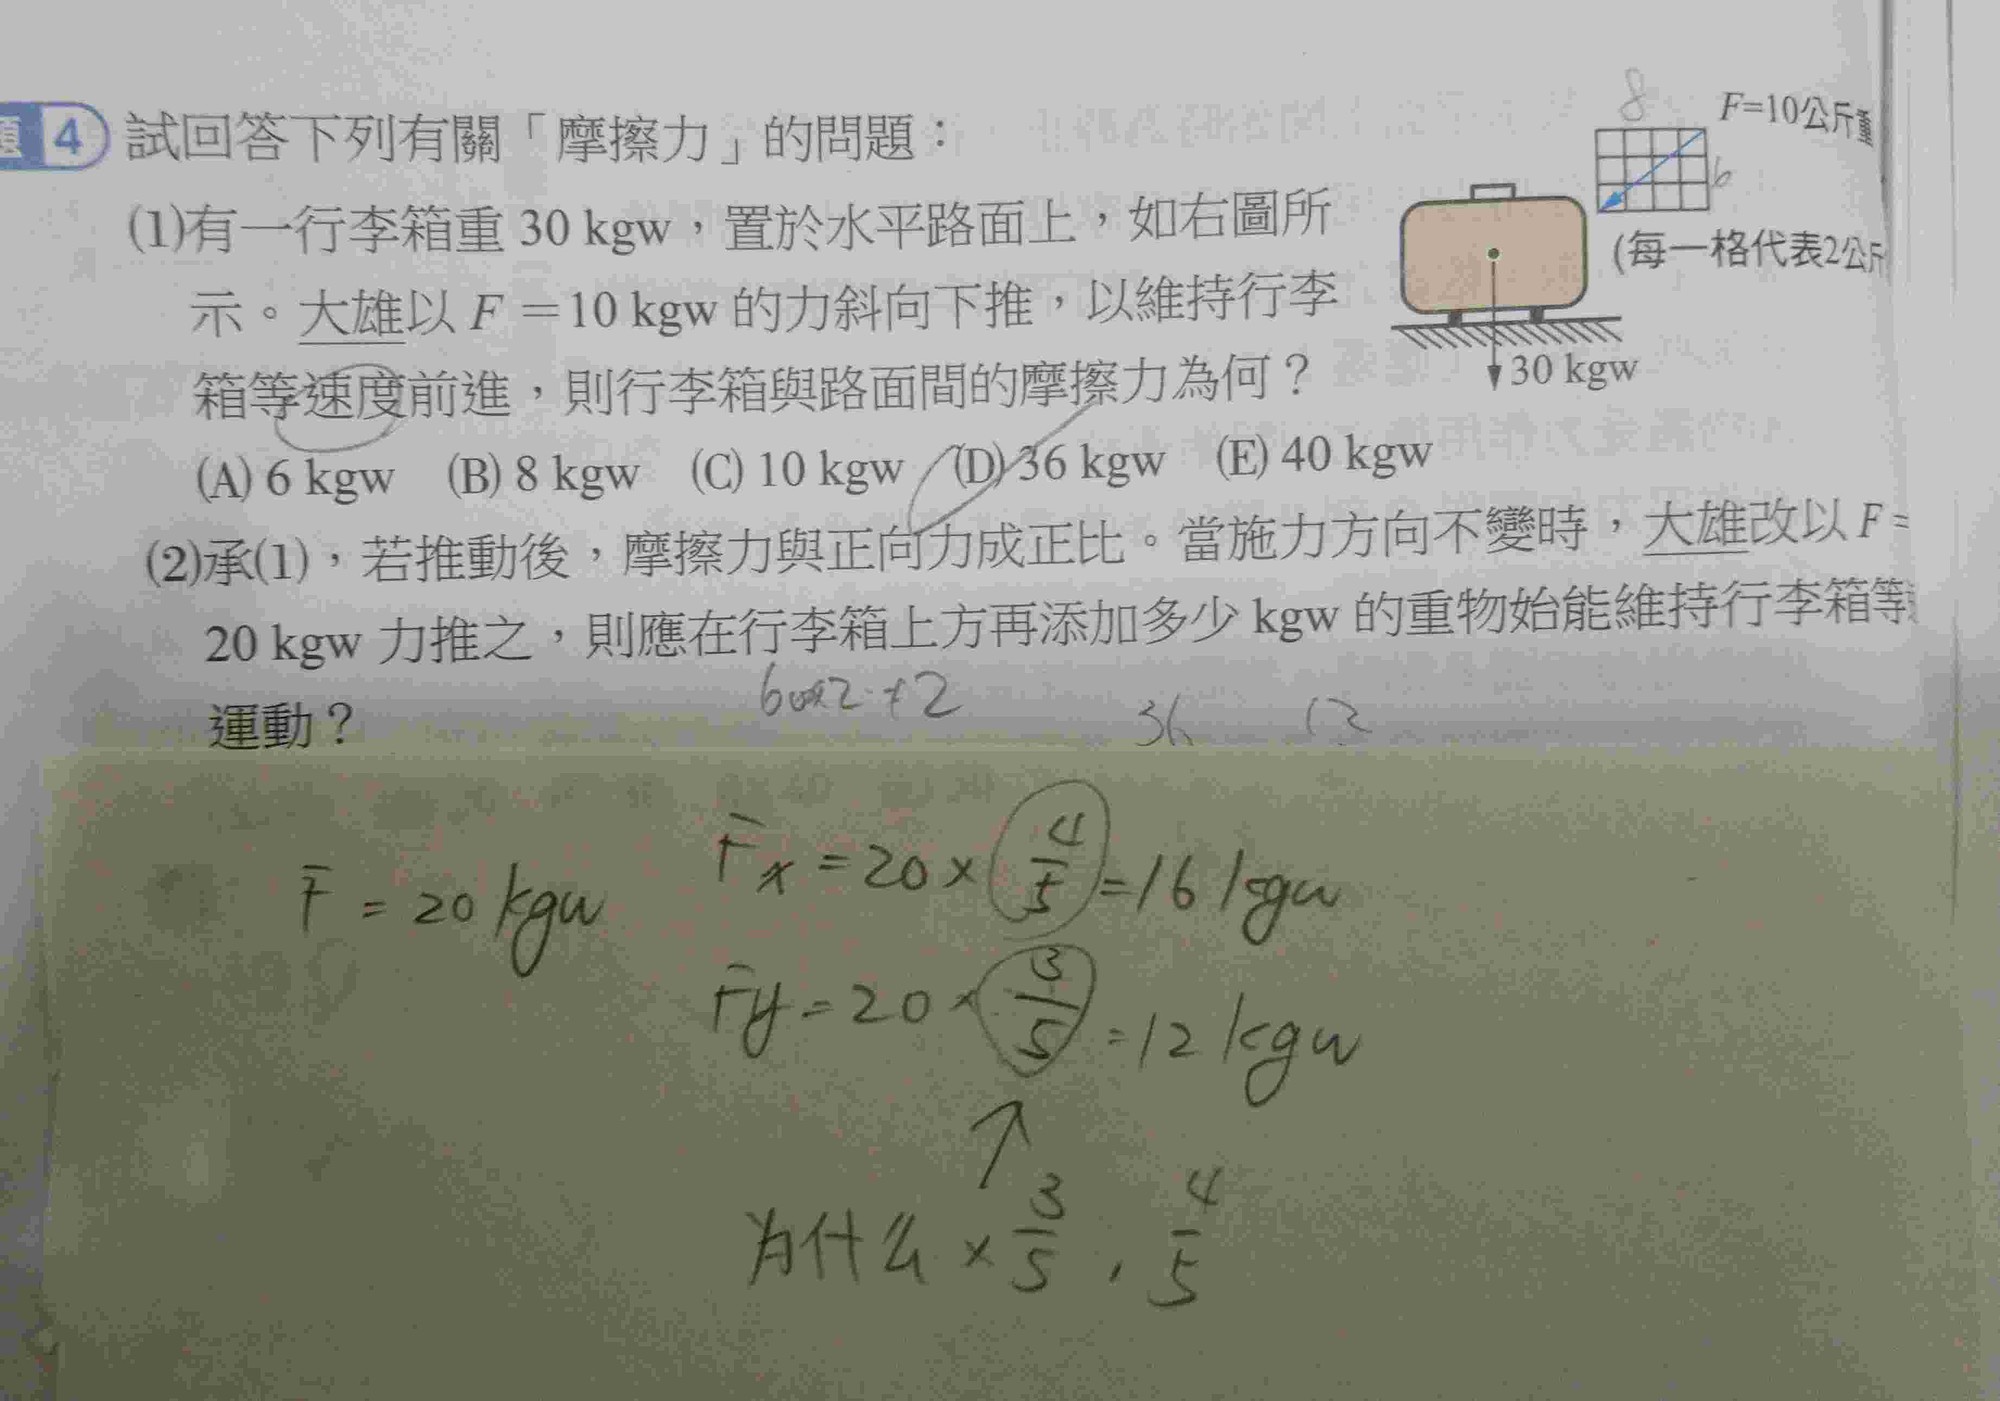 題 4 試回答下列有關「摩擦力」的問題：
(1)有一行李箱重 30 kgw，置於水平路面上，如右圖所
示。大雄以 F＝10 kgw 的力斜向下推，以維持行李
箱等速度前進，則行李箱與路面間的摩擦力為何？
(A) 6 kgw (B) 8 kgw (C) 10 kgw (D) 36 kgw (E) 40 kgw
8
F=10公斤重
6
(每一格代表2公斤
30 kgw
(2)承(1)，若推動後，摩擦力與正向力成正比。當施力方向不變時，大雄改以 F＝
20 kgw 力推之，則應在行李箱上方再添加多少 kgw 的重物始能維持行李箱等
運動？
36 12
F = 20 kgw
Fx = 20 × 4/5 = 16 kgw
Fy = 20 × 3/5 = 12 kgw
↑
为什么 × 3/5 , 4/5